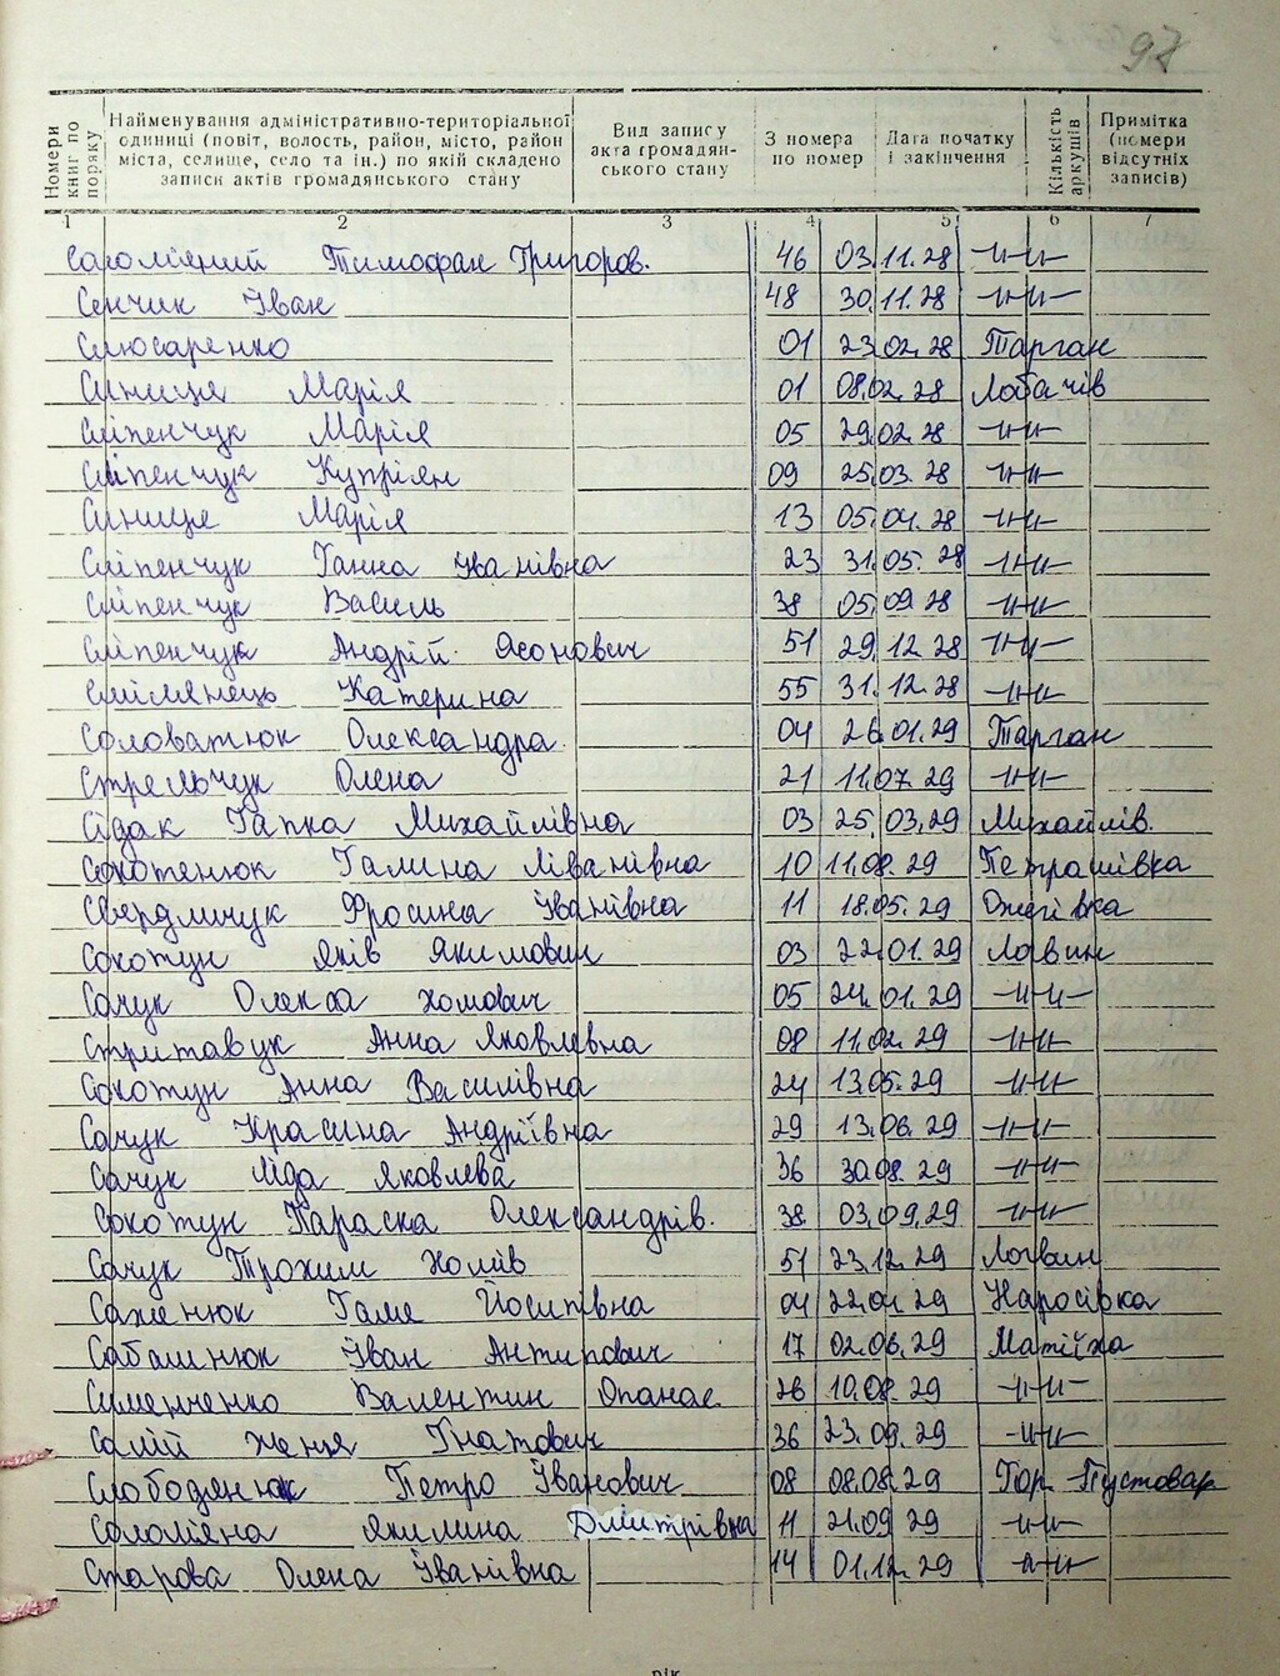 97
Номери книг по поряку
Найменування адміністративно-територіальної
одиниці (повіт, волость, район, місто, район
міста, селище, село та ін.) по якій складено
записи актів громадянського стану
Вид запису
акта громадян-
ського стану
З номера
по номер
Дата початку
і закінчення
Кількість аркушів
Примітка
(номери
відсутніх
записів)
1 2 3 4 5 6 7
Соломяний Тимофан Григоров. 46 03.11.28 -//-//-
Сенчик Іван 48 30.11.28 -//-//-
Слюсаренко 01 23.02.28 Тарган
Синиця Марія 01 08.02.28 Лобачів
Сліпенчук Марія 05 29.02.28 -//-//-
Сліпенчук Купріян 09 25.03.28 -//-//-
Синиця Марія 13 05.04.28 -//-//-
Сліпенчук Ганна Іванівна 23 31.05.28 -//-//-
Сліпенчук Василь 38 05.09.28 -//-//-
Сліпенчук Андрій Ясонович 51 29.12.28 -//-//-
Смілянець Катерина 55 31.12.28 -//-//-
Соловатюк Олександра 04 26.01.29 Тарган
Стрельчук Олена 21 11.07.29 -//-//-
Сідак Гапка Михайлівна 03 25.03.29 Михайлів.
Сокотенюк Галина Ліванівна 10 11.08.29 Петрашівка
Свердличук Фросина Іванівна 11 18.05.29 Ожегівка
Сокотун Яків Якимович 03 22.01.29 Логвин
Сачук Олекса Хомович 05 24.01.29 -//-//-
Стритавук Анна Яковлевна 08 11.02.29 -//-//-
Сокотун Анна Василівна 24 13.05.29 -//-//-
Сачук Красина Андріївна 29 13.06.29 -//-//-
Сачук Ліда Яковлева 36 30.08.29 -//-//-
Сокотун Параска Олександрів. 38 03.09.29 -//-//-
Сачук Трохим Хомів 51 23.12.29 Логвин
Саженюк Галя Йосипівна 04 22.01.29 Наросівка
Сабашнюк Іван Антипович 17 02.06.29 Матіїха
Сименченко Валентин Опанас. 26 10.08.29 -//-//-
Салій Женя Гнатович 36 23.09.29 -//-//-
Слободянюк Петро Іванович 08 08.08.29 Гор-Пустовар
Соломяна Якилина Дмитрівна 11 21.09.29 -//-//-
Старова Олена Іванівна 14 01.12.29 -//-//-
рік